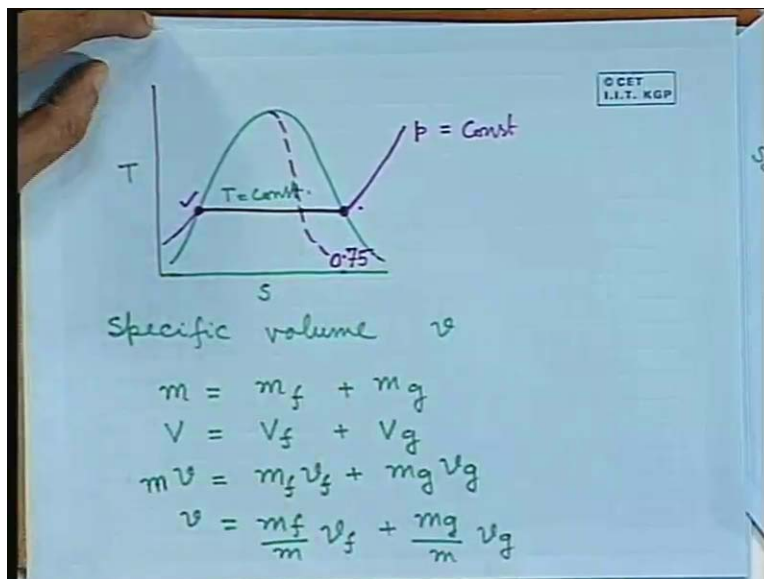 © CET
I.I.T. KGP
p = Const
T
T = Const.
0.75
S
Specific volume v
m = m_f + m_g
V = V_f + V_g
m v = m_f v_f + m_g v_g
v = m_f/m v_f + m_g/m v_g